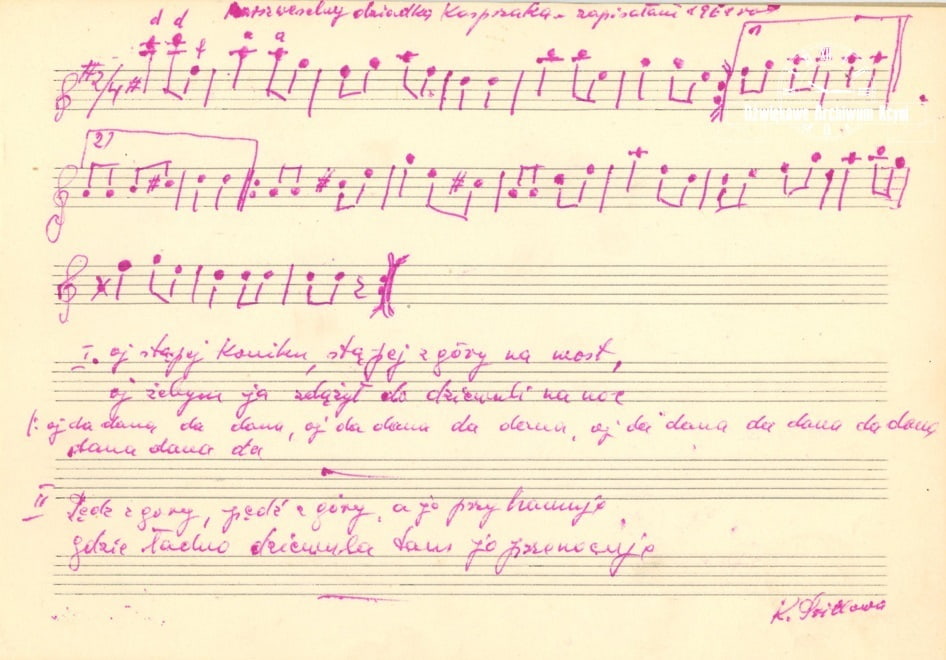 dziadka Kasprzaka - zapisałam 1968 ro
d d f a a
2/4
1)
Dźwiękowe Archiwum Kcyni
2)
I. oj stąpej Koniku, stąpej z góry na most,
oj żebym ja zdążył do dziewuli na noc
/: oj da dana da dana, oj da dana da dana, oj da dana da dana da dana
dana dana da
II Pędź z góry, pędź z góry, a jo przyhamuje
gdzie ładno dziewula tam jo przenocuje
K.